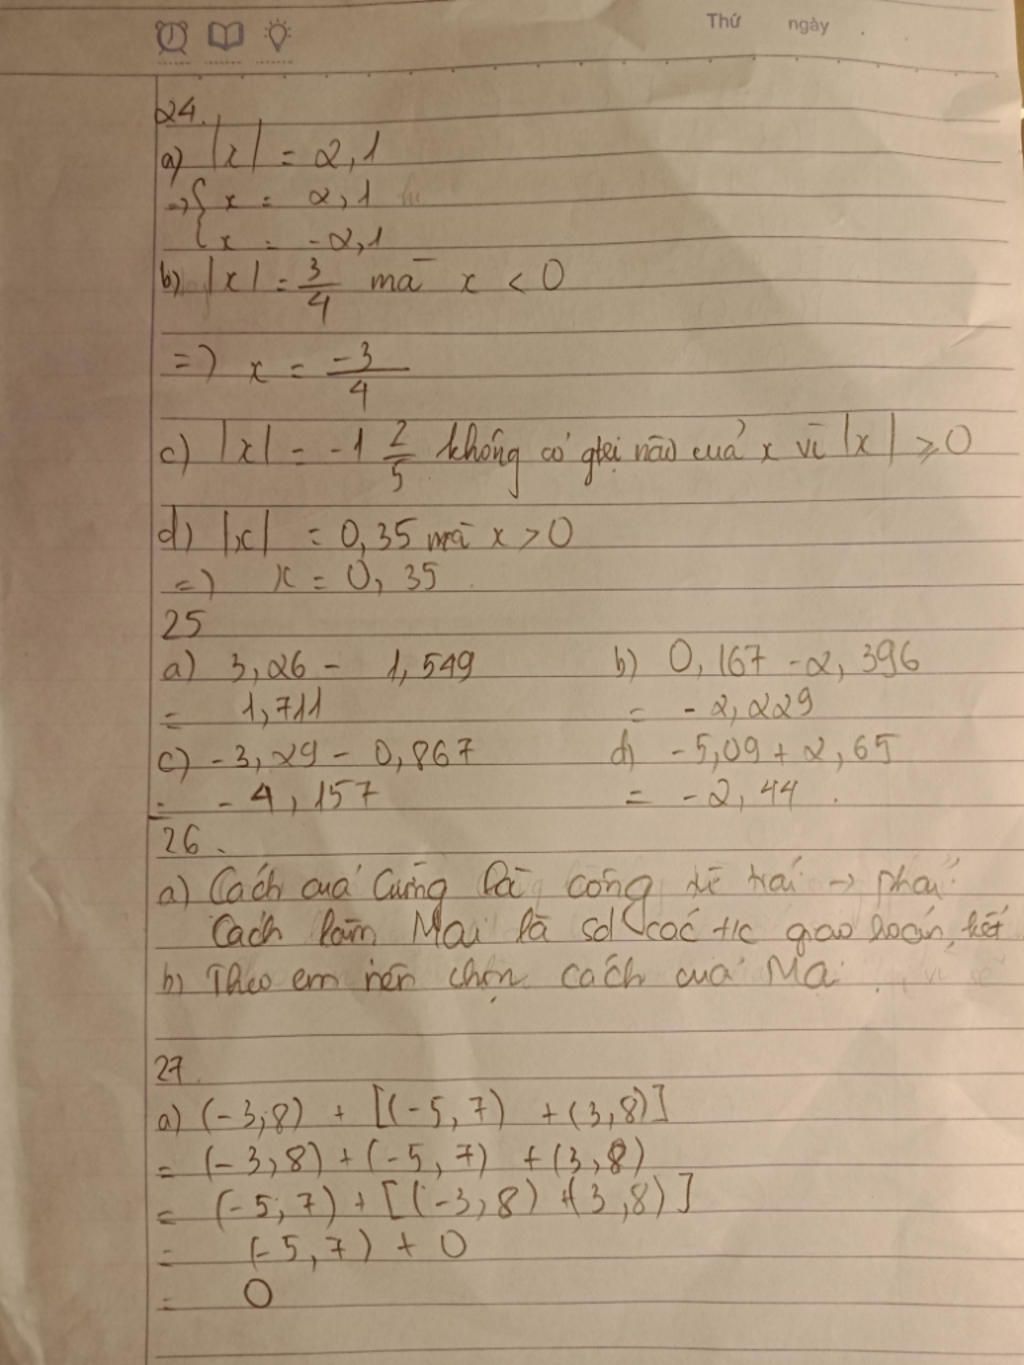 Thứ ngày
24.
a) |x| = 2,1
=> { x = 2,1
{ x = -2,1
b) |x| = 3/4 mà x < 0
=> x = -3/4
c) |x| = -1 2/5 không có gtri nào cuả x vì |x| ≥ 0
d) |x| = 0,35 mà x > 0
=> x = 0,35
25
a) 3,26 - 1,549 b) 0,167 - 2,396
= 1,711 = -2,229
c) -3,29 - 0,867 d) -5,09 + 2,65
= -4,157 = -2,44.
26.
a) Cách cuả Cường là cộng từ trái -> phải
Cách làm Mai là sd các t/c giao hoán, kết
b) Theo em nên chọn cách cuả Mai
27.
a) (-3,8) + [(-5,7) + (3,8)]
= (-3,8) + (-5,7) + (3,8)
= (-5,7) + [(-3,8) + (3,8)]
= (-5,7) + 0
= 0